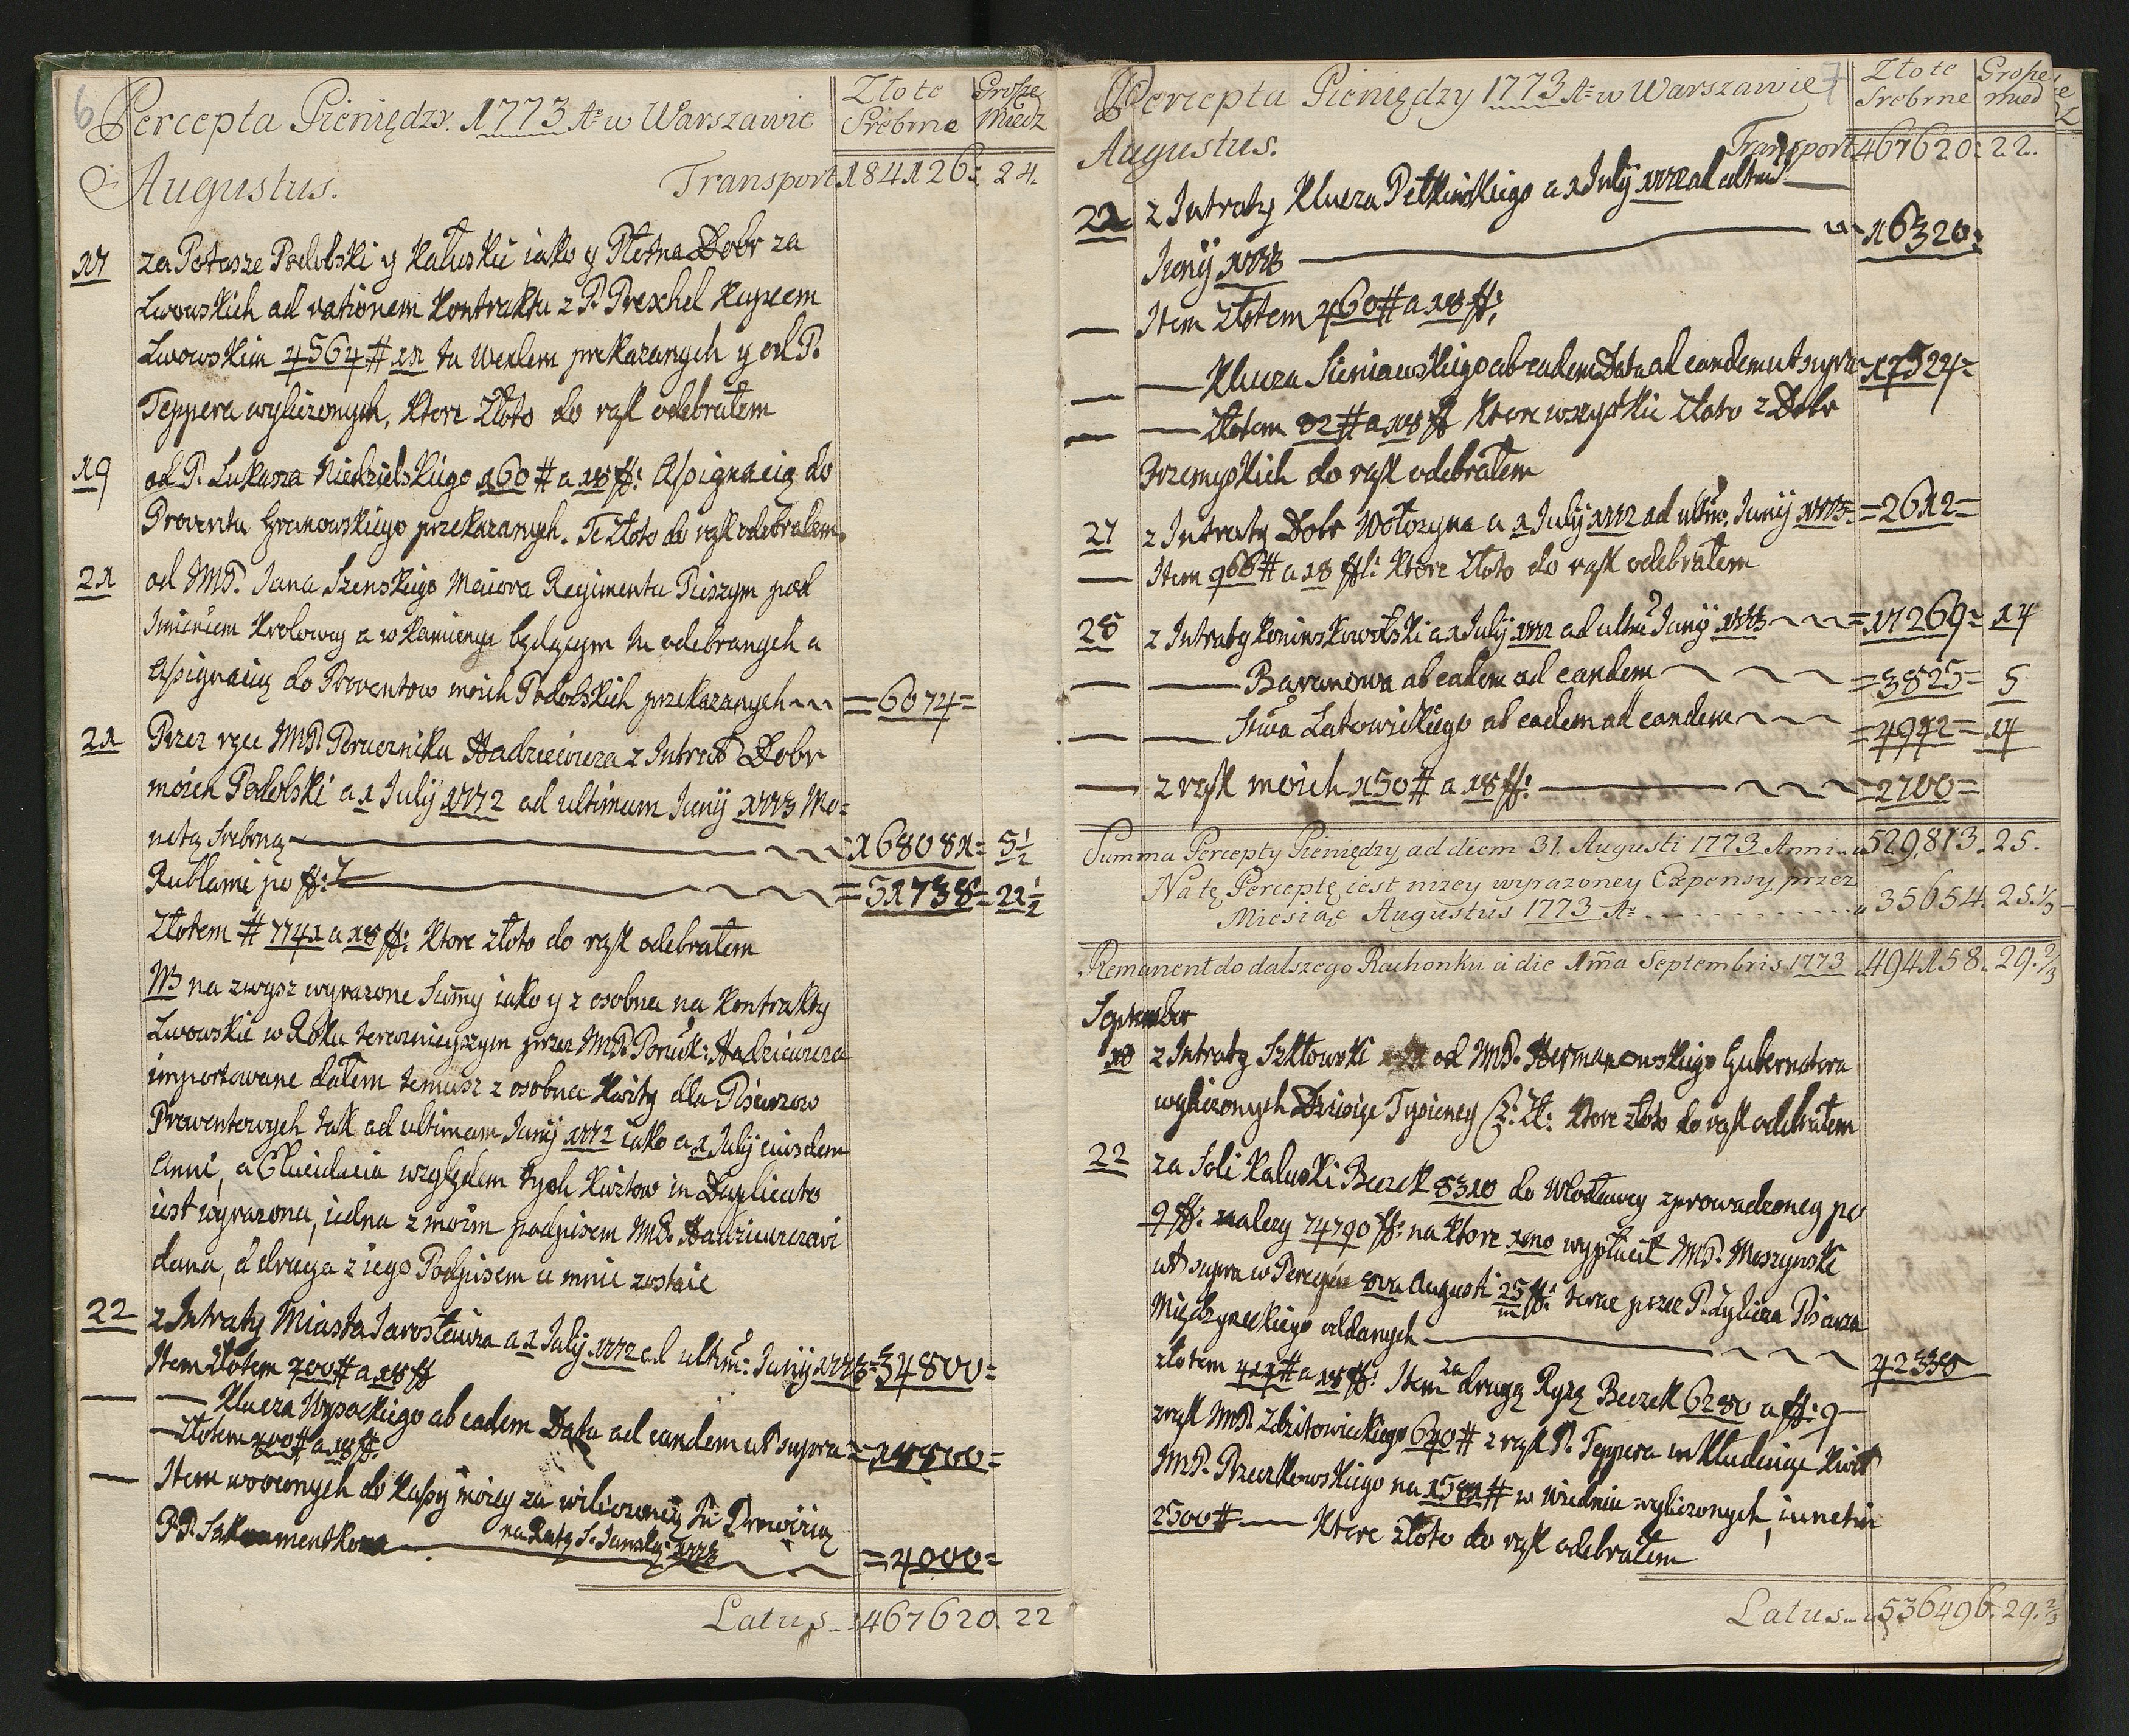 6
Percepta Pieniędzy. 1773 A= w Warszawie
Złote Srebrne
Grosze Miedz
Augustus.
Transport 184126: 24.
17 za Potasze Podolski y Kałuskie iako y Płotna Dobr za
Lwowskich ad rationem Kontraktu z P. Prexhel Kupcem
Lwowskim 4564 # tu Wexlem prekazanych y od P.
Teppera wyliczonych, Ktore Złoto do rąk odebrałem
19 od P. Lukasza Niedzielskiego 160 # a 18 ff: Assignacią do
Proventu Granowskiego przekazanych. Te Złoto do rąk odebrałem.
21 od JMP. Jana Szenskiego Maiora Regimentu Pieszym pod
Jmieniem Krolowey a w Kamieńcu będącym tu odebranych a
Assignacią do Proventow moich Podolskich przekazanych =6074=
21 Przez ręce JMP. Porucznika Hadziewicza z Intrat Dobr
moich Podolski a 1 July 1772 ad ultimum Junij 1773 Mo=
netą Srebrną =168081= 5½
Rublami po ff: 7 =51738= 21½
Złotem # 7741 a 18 ff: Ktore złoto do rąk odebrałem
NB na zwysz wyrazone Summy iako y z osobna na Kontrakty
Lwowskie w Roku teraznieyszym przez JMP. Porucz: Hadziewicza
importowane dałem temusz z osobna Kwity dla Pisarzow
Prowentowych tak ad ultimam Junij 1772 iako a 1 July eiusdem
Anni, a Elucidacia względem tych Kwitow in Duplicato
iest wyrazona, iedna z moim podpisem JMP. Hadziewiczowi
dana, a druga z iego Podpisem u mnie zostaie
22 z Intraty Miasta Jarosławia a 1 July 1772 ad ultim: Junij 1773 =34800=
Item Złotem 700 # a 18 ff
— — Klucza Wysockiego ab eadem Data ad eandem ut supra =14800=
— Złotem 200 # a 18 ff:
— Item wroconych do Kassy moiey za Prowizią
PP. Sakramentkom na Ratę S. Janską 1773 =4000=
Latus 467620. 22
7
Percepta Pieniędzy 1773 A= w Warszawie
Złote Srebrne
Grosze mied
Augustus.
Transport 467620: 22.
22 z Intraty Klucza Pełkinskiego a 1 July 1772 ad ultim
Junij 1773 16320=
— Item Złotem 460 # a 18 ff:
— — Klucza Sieniawskiego ab eadem Data ad eandem ut supra =17524=
— — Złotem 92 # a 18 ff Ktore wszystkie Złoto z Dobr
Przemyskich do rąk odebrałem
27 z Intraty Dobr Wołozyna a 1 July 1772 ad ultim. Junij 1773. =2612=
— Item 966 # a 18 ff: Ktore Złoto do rąk odebrałem
28 z Intraty Koninskowolski a 1 July 1772 ad ultim Junij 1773 =17269= 14
— — Baranowa ab eadem ad eandem =3825= 5
— — Stwa Latowickiego ab eadem ad eandem =4972= 14
— z rąk moich 150 # a 18 ff: =2700=
Summa Percepty Pieniędzy ad diem 31. Augusti 1773 Anni 529,813. 25.
Na tę Perceptę iest nizey wyrazoney Expensy przez
Miesiąc Augustus 1773 A= 35654. 25.⅓
Remanent do dalszego Rachonku a die 1ma Septembris 1773 494158. 29.⅔
September
18 z Intraty Szkłowski od JMP. Hermanowskiego Gubernatora
wyliczonych Dziesięc Tysięcy Cz: Zł: Ktore złoto do rąk odebrałem
22 za Soli Kaluski Beczek 8310 do Włodawy zprowadzoney po
9 ff: nalezy 74790 ff: na Ktore 1mo wypłacił JMP. Moszynski
ut supra w Percepcie 8va Augusti 25 m ff: teraz przez P. Pisarza
Międzyrzeckiego oddanych 42338
złotem 414 # a 18 ff: Item za drugą Ryzę Beczek 6280 a ff: 9
z rąk JMP. Zdzitowieckiego 640 # z rąk P. Teppera inKludeiąc Kwit
JMP. Przeczkowskiego na # w Wiedniu wyliczonych, iunctim
2500 # — Ktore złoto do rąk odebrałem
Latus 536496. 29.⅔